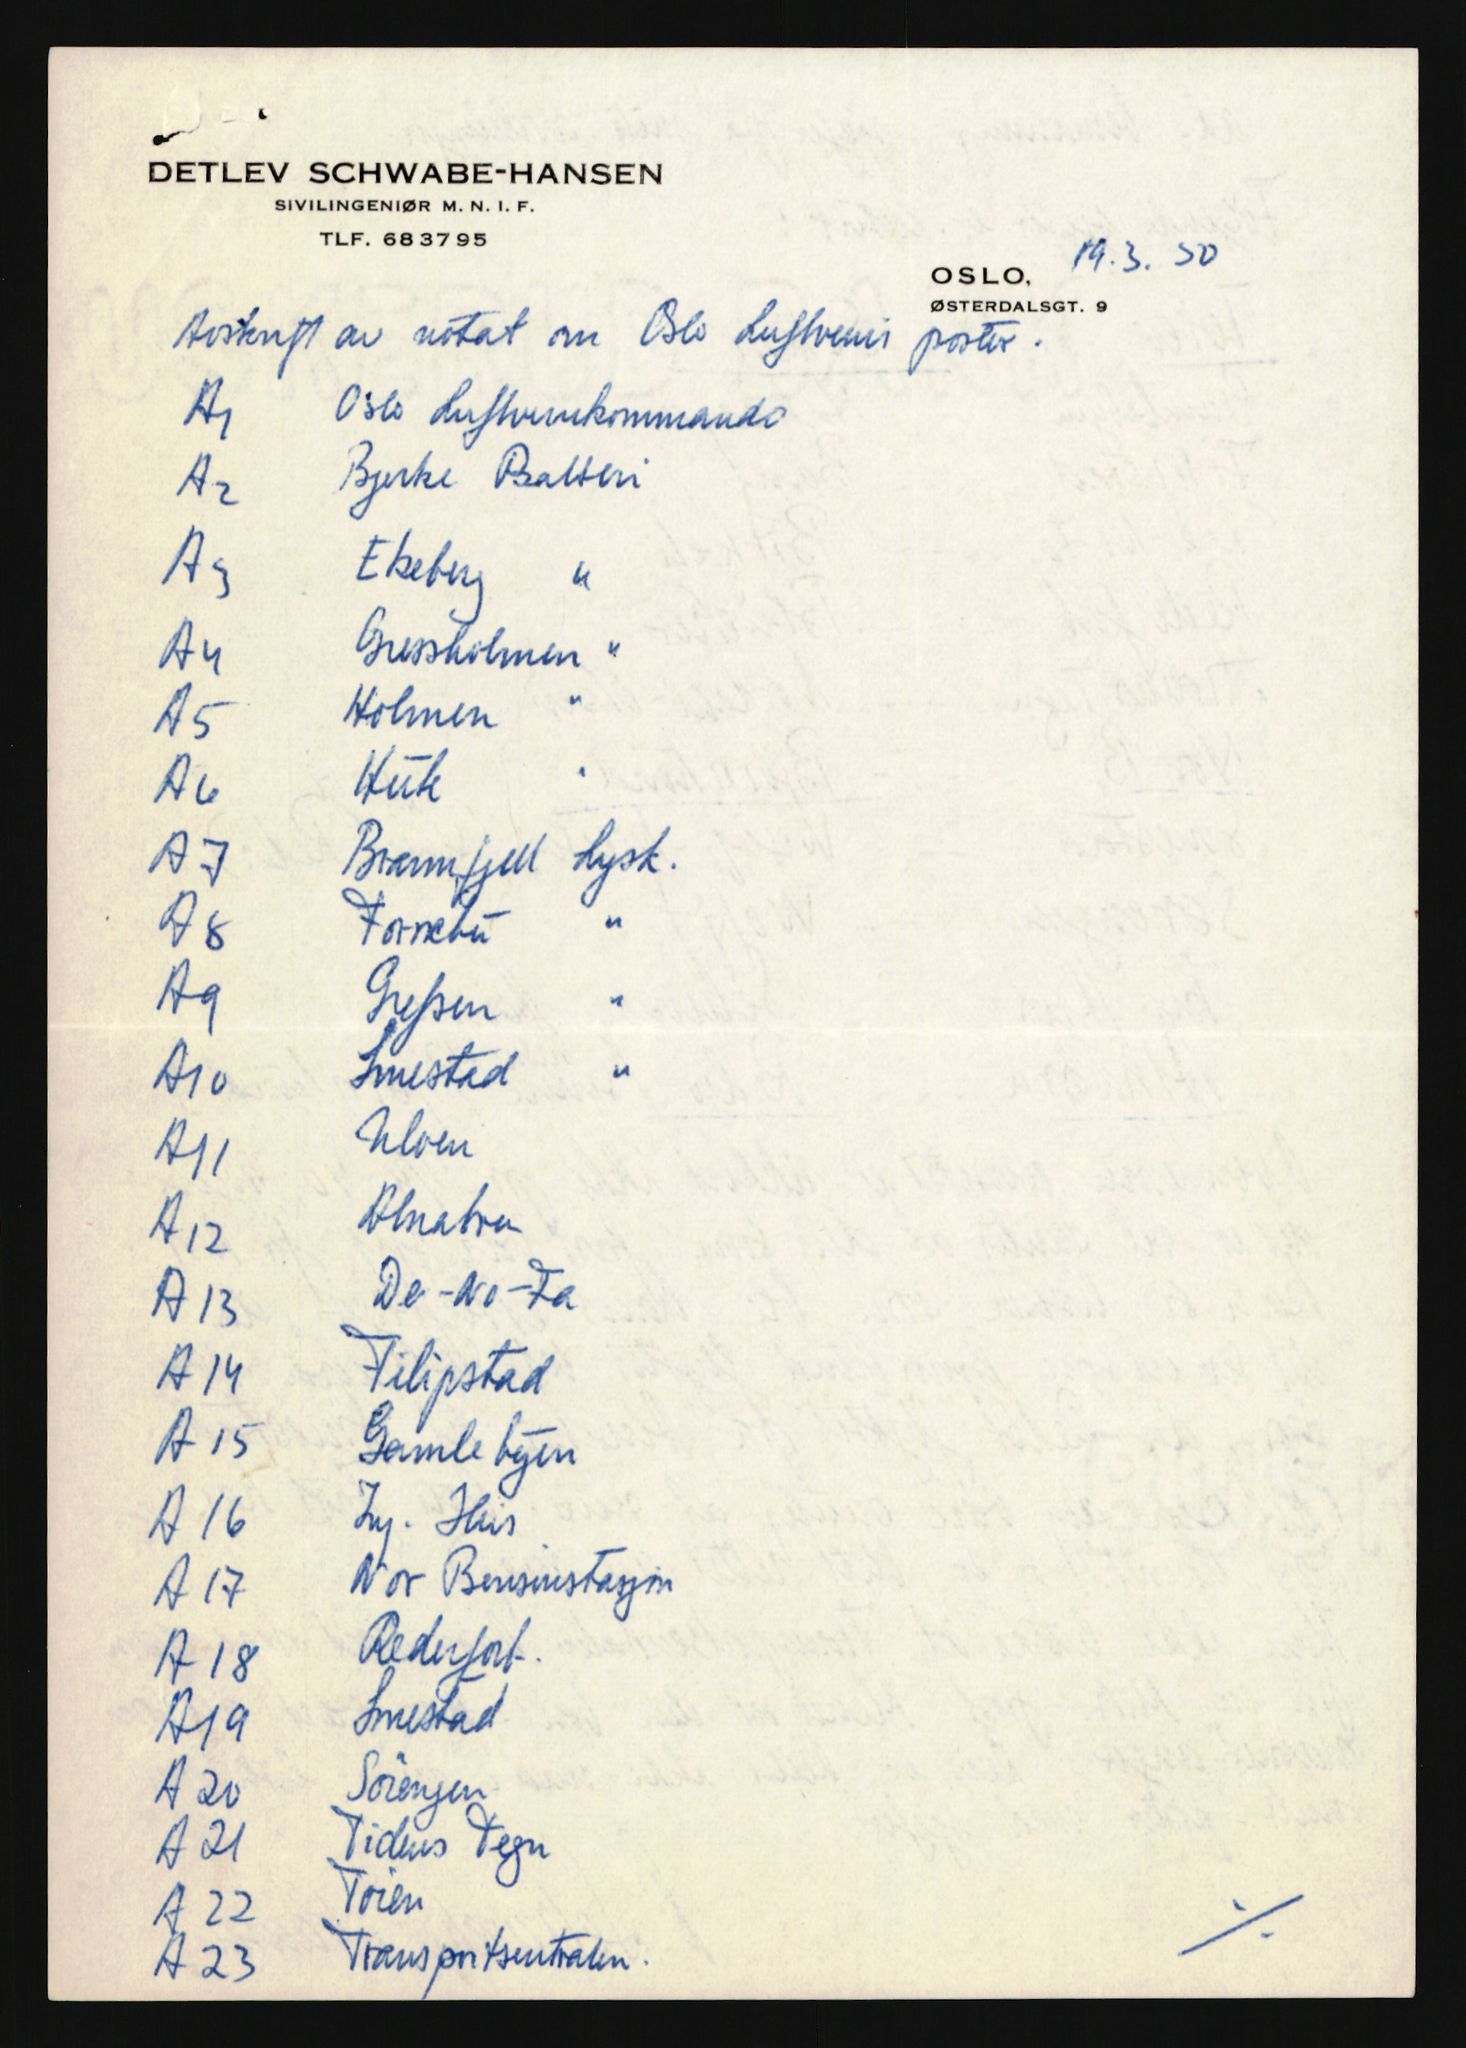 DETLEV SCHWABE-HANSEN
SIVILINGENIØR M. N. I. F.
TLF. 683795
OSLO, 19.3.50
ØSTERDALSGT. 9
Avskrift av notat om Oslo Luftverns poster.
A1 Oslo Luftvernkommando
A2 Bjerke Batteri
A3 Ekeberg "
A4 Gressholmen "
A5 Holmen "
A6 Huk "
A7 Brannfjell Lysk.
A8 Fornebu "
A9 Grefsen "
A10 Smestad "
A11 Uloen
A12 Alnabru
A13 De-No-Fa
A14 Filipstad
A15 Gamlebyen
A16 Ing. Hus
A17 Nor Bensinstasjon
A18 Rederforb.
A19 Smestad
A20 Sörengen
A21 Tidens Tegn
A22 Töien
A23 Transportsentralen.
./.